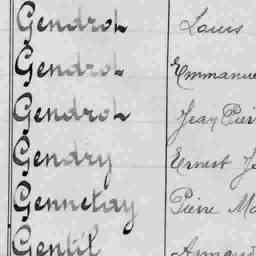 Gendrot Louis
Gendrot Emmanue
Gendrot Jean Pier
Gendry Ernest Je
Gennetay Pierre Ma
Gentil Armand